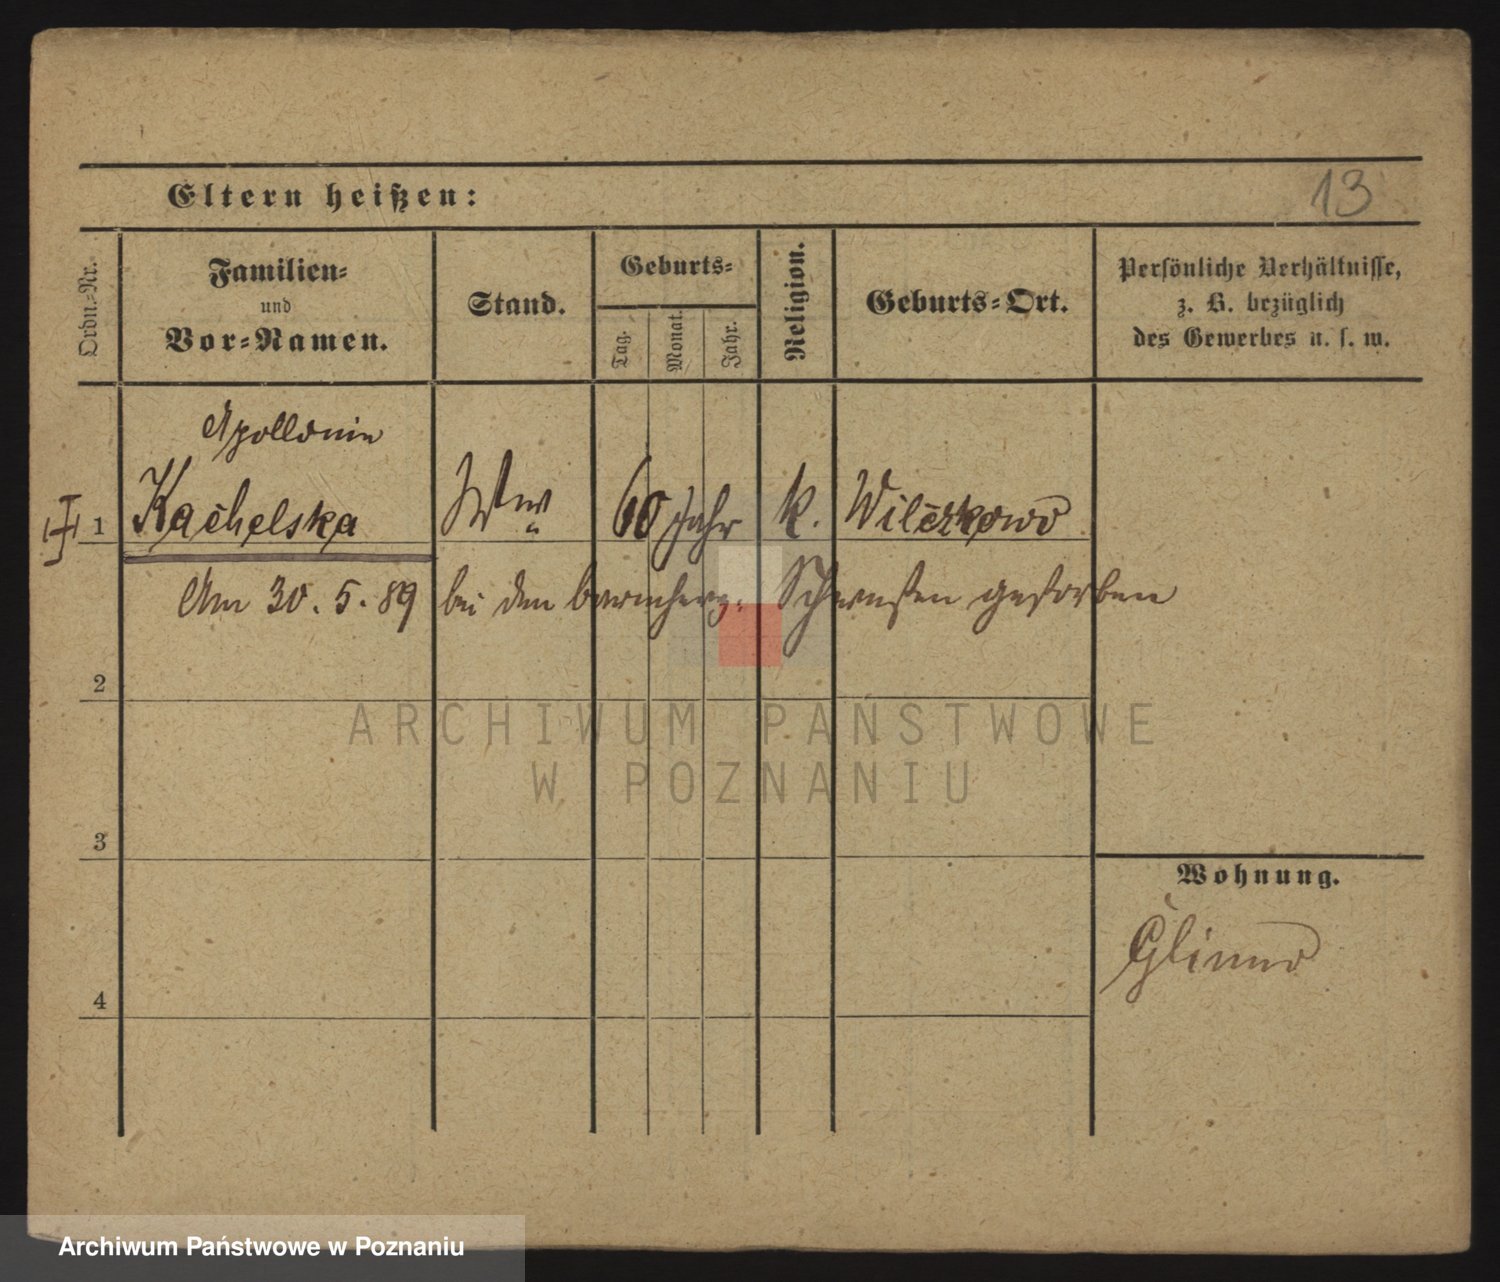 Eltern heißen:
13
Ordn.-Nr.
Familien-
und
Vor-Namen.
Stand.
Geburts-
Tag.
Monat.
Jahr.
Religion.
Geburts-Ort.
Persönliche Verhältnisse,
z. B. bezüglich
des Gewerbes u. s. w.
Apollonie
1 Kachelska Ww 60 Jahr k. Wilczkowo
Am 30. 5. 89 bei den barmherz. Schwestern gestorben
2
3
4
Wohnung.
Glinno
ARCHIWUM PAŃSTWOWE
W POZNANIU
Archiwum Państwowe w Poznaniu